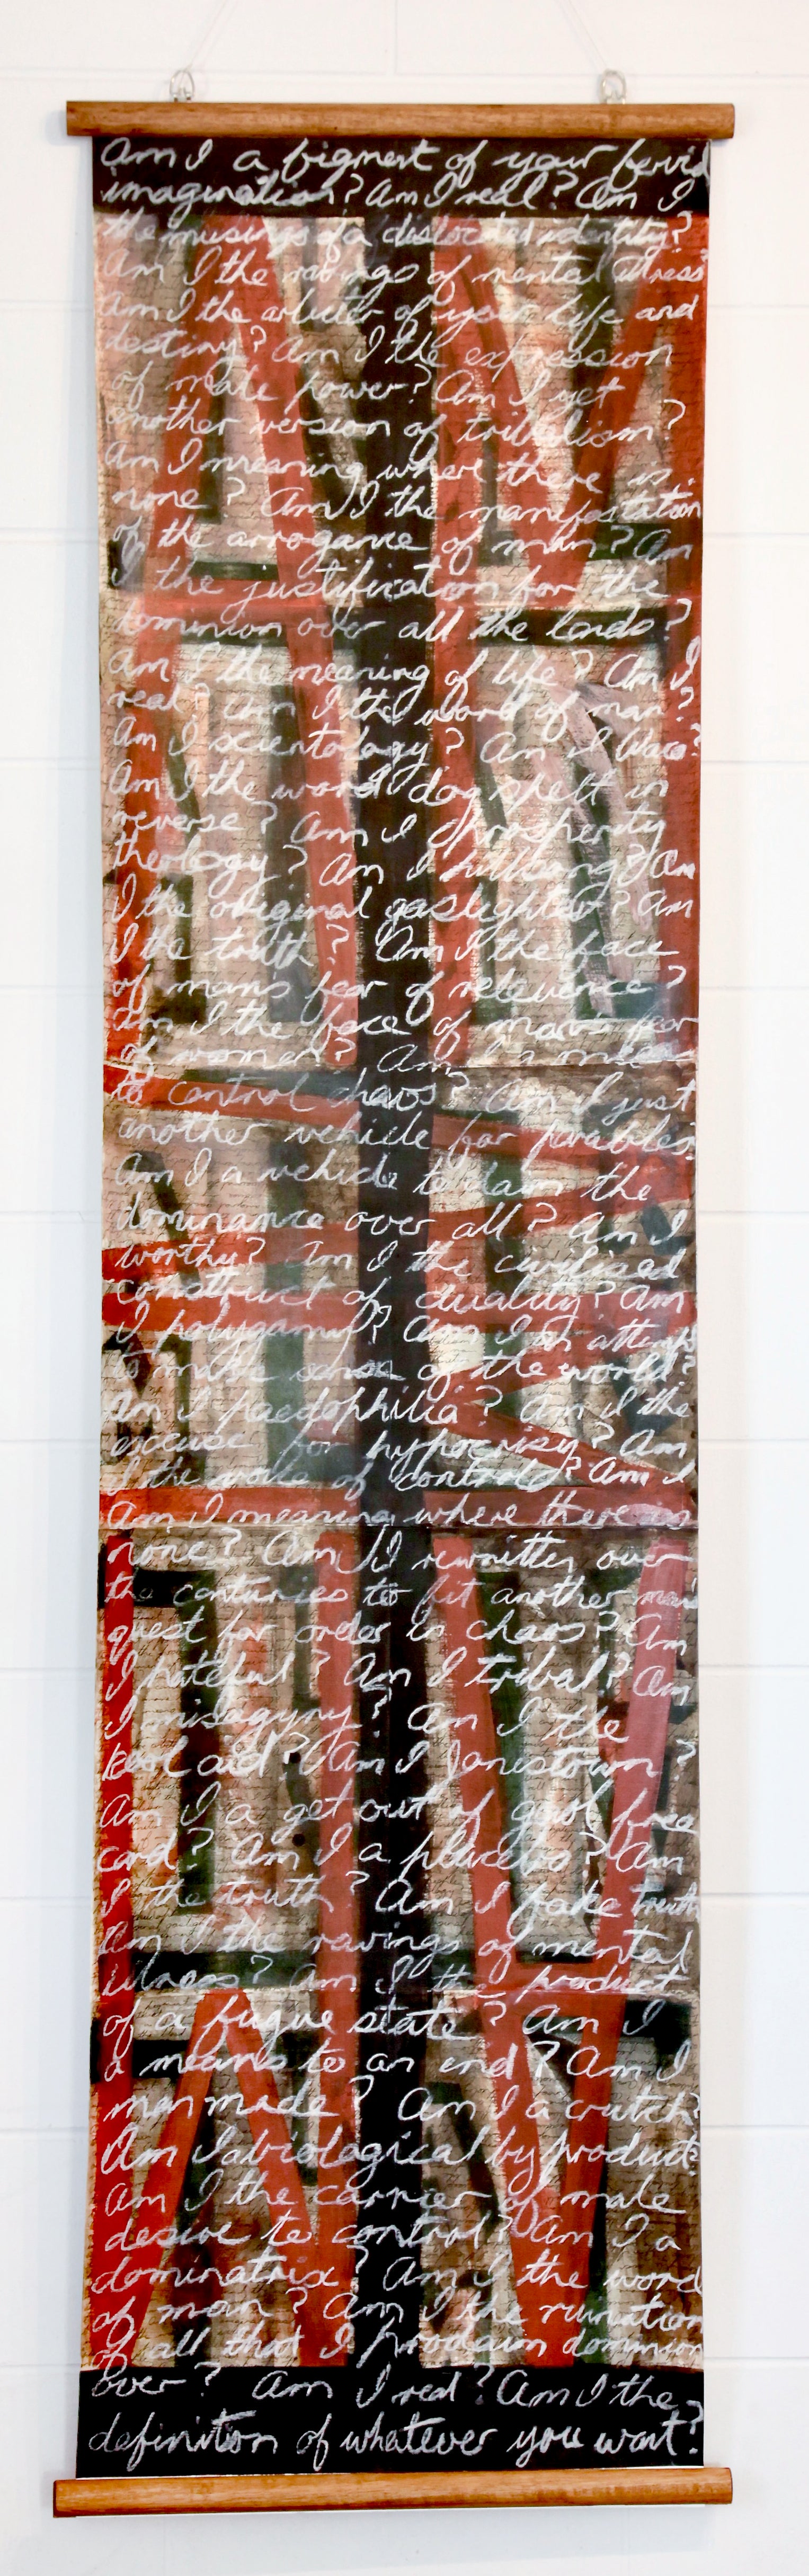 Am I a figment of your fervid
imagination? Am I real? Am I
the musings of a dislocated identity?
Am I the ravings of mental illness
Am I the arbiter of your life and
destiny? Am I the expression
of male power? Am I yet
another version of tribalism?
Am I meaning where there is
none? Am I the manifestation
of the arrogance of man? Am
I the justification for the
dominion over all the lands?
Am I the meaning of life? Am I
real? Am I the word of man?
Am I scientology? Am I Waco?
Am I the word dog spelt in
reverse? Am I prosperity
theology? Am I hillsong? Am
I the original gaslighter? Am
I the truth? Am I the face
of mans fear of relevance?
Am I the face of mans fear
of woman? Am I a means
to control chaos? Am I just
another vehicle for parables?
Am I a vehicle to claim the
dominance over all? Am I
worthy? Am I the civilised
construct of duality? Am
I polygamy? Am I an attempt
to make sense of the world?
Am I paedophilia? Am I the
excuse for hypocrisy? Am
I the voice of control? Am I
Am I meaning where there is
none? Am I rewritten over
the centuries to fit another mans
quest for order in chaos? Am
I hateful? Am I tribal? Am
I misogyny? Am I the
kool aid? Am I Jonestown?
Am I a get out of gaol free
card? Am I a placebo? Am
I the truth? Am I fake truth
Am I the ravings of mental
illness? Am I the product
of a fugue state? Am I
a means to an end? Am I
man made? Am I a crutch?
Am I a biological by product?
Am I the carrier of male
desire to control? Am I a
dominatrix? Am I the word
of man? Am I the ruination
of all that I proclaim dominion
over? Am I real? Am I the
definition of whatever you want?